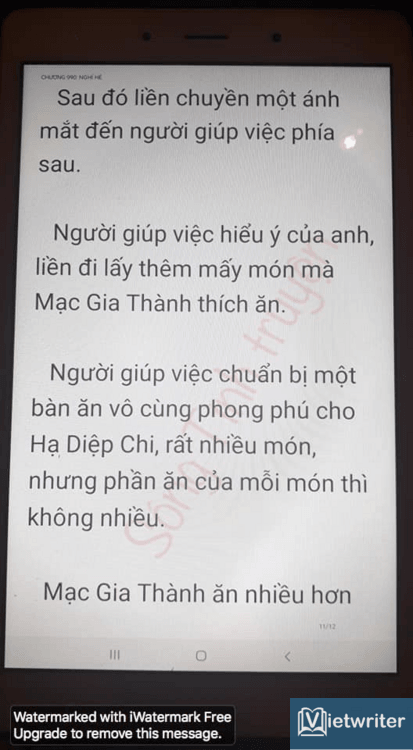 CHƯƠNG 990: NGHỈ HÈ
Sau đó liền chuyền một ánh
mắt đến người giúp việc phía
sau.
Người giúp việc hiểu ý của anh,
liền đi lấy thêm mấy món mà
Mạc Gia Thành thích ăn.
Người giúp việc chuẩn bị một
bàn ăn vô cùng phong phú cho
Hạ Diệp Chi, rất nhiều món,
nhưng phần ăn của mỗi món thì
không nhiều.
Mạc Gia Thành ăn nhiều hơn
11/12
Sóng Tình truyện
Watermarked with iWatermark Free
Upgrade to remove this message.
Vietwriter